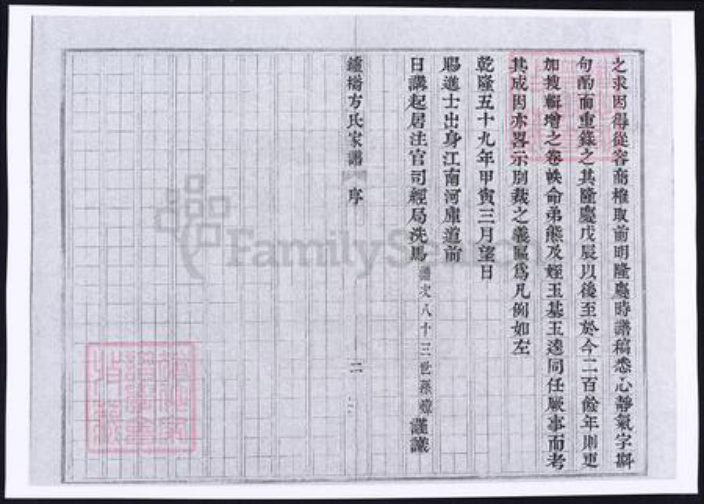 之求因得從容商榷取前明隆慶時譜稿悉心靜氣字斟
句酌而重錄之其隆慶戊辰以後至於今二百餘年則更
加搜輯增之卷帙命弟熊及姪玉基玉逵同任厥事而考
其成因亦畧示別裁之義區爲凡例如左
乾隆五十九年甲寅三月望日
賜進士出身江南河庫道前
日講起居注官司經局洗馬譜次八十三世孫 謹識
方氏家譜 序 二
FamilySearch